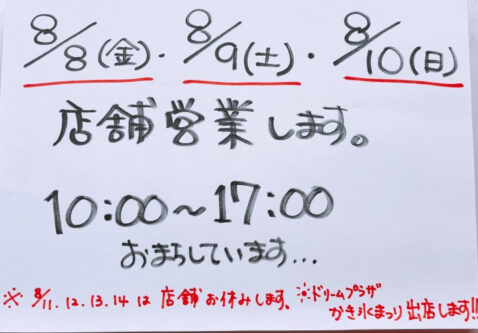 8/8(金)・8/9(土)・8/10(日)
店舗営業します。
10:00〜17:00
おまちしています...
※ 8/11.12.13.14は店舗お休みします、
ドリームプラザ
かき氷まつり出店します!!